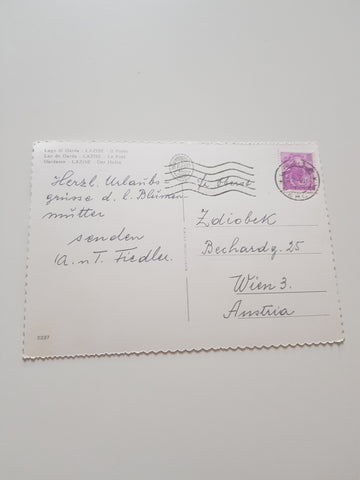 Lago di Garda - LAZISE - Il Porto
Lac de Garda - LAZISE - Le Port
Gardasee - LAZISE - Der Hafen
Herzl. Urlaubs-
grüsse d. l. Blumen-
mutter
senden
A. u T. Fiedler.
Zdiobek
Bechardg. 25
Wien 3.
Austria